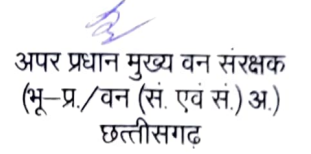 अपर प्रधान मुख्य वन संरक्षक
(भू–प्र./वन (सं. एवं सं.) अ.)
छत्तीसगढ़